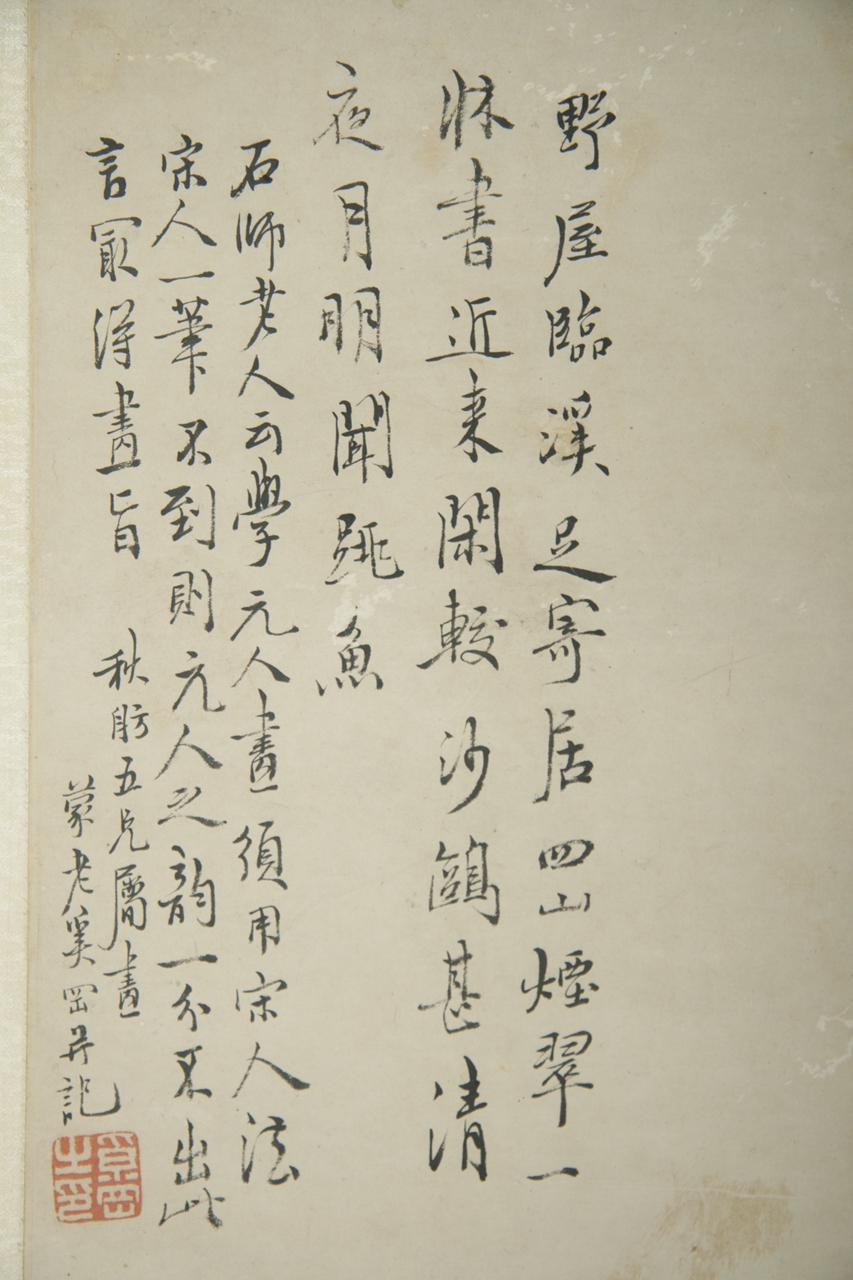 野屋臨溪足寄居四山煙翠一
牀書近來閑較沙鷗甚清
夜月明聞跳魚
石師老人云學元人畫須用宋人法
宋人一筆不到則元人之韵一分不出此
言冣得畫旨
秋舫五兄屬畫
蒙老奚岡并記
奚岡之印